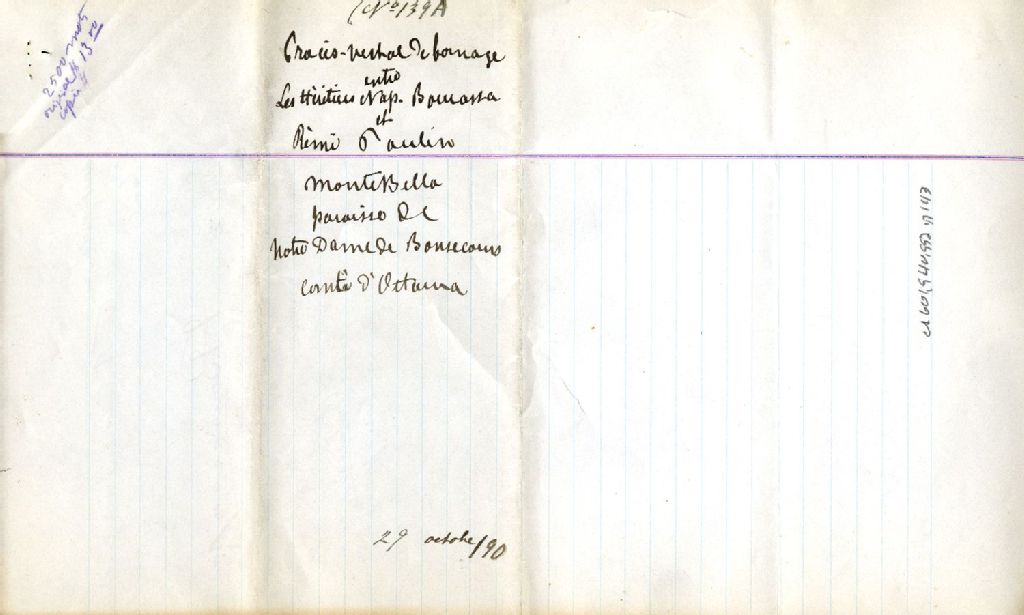 (No 139A
Procès-verbal de bornage
entre
Les Héritiers Nap. Bourassa
et
Rémi Paulin
MonteBello
paroisse de
Notre Dame de Bonsecours
comté d'Ottawa
29 octobre/90
2500 mots
original $ 13 00
copie $